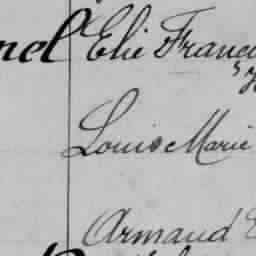 nel Elie Franç
Louis Marie
Armand E